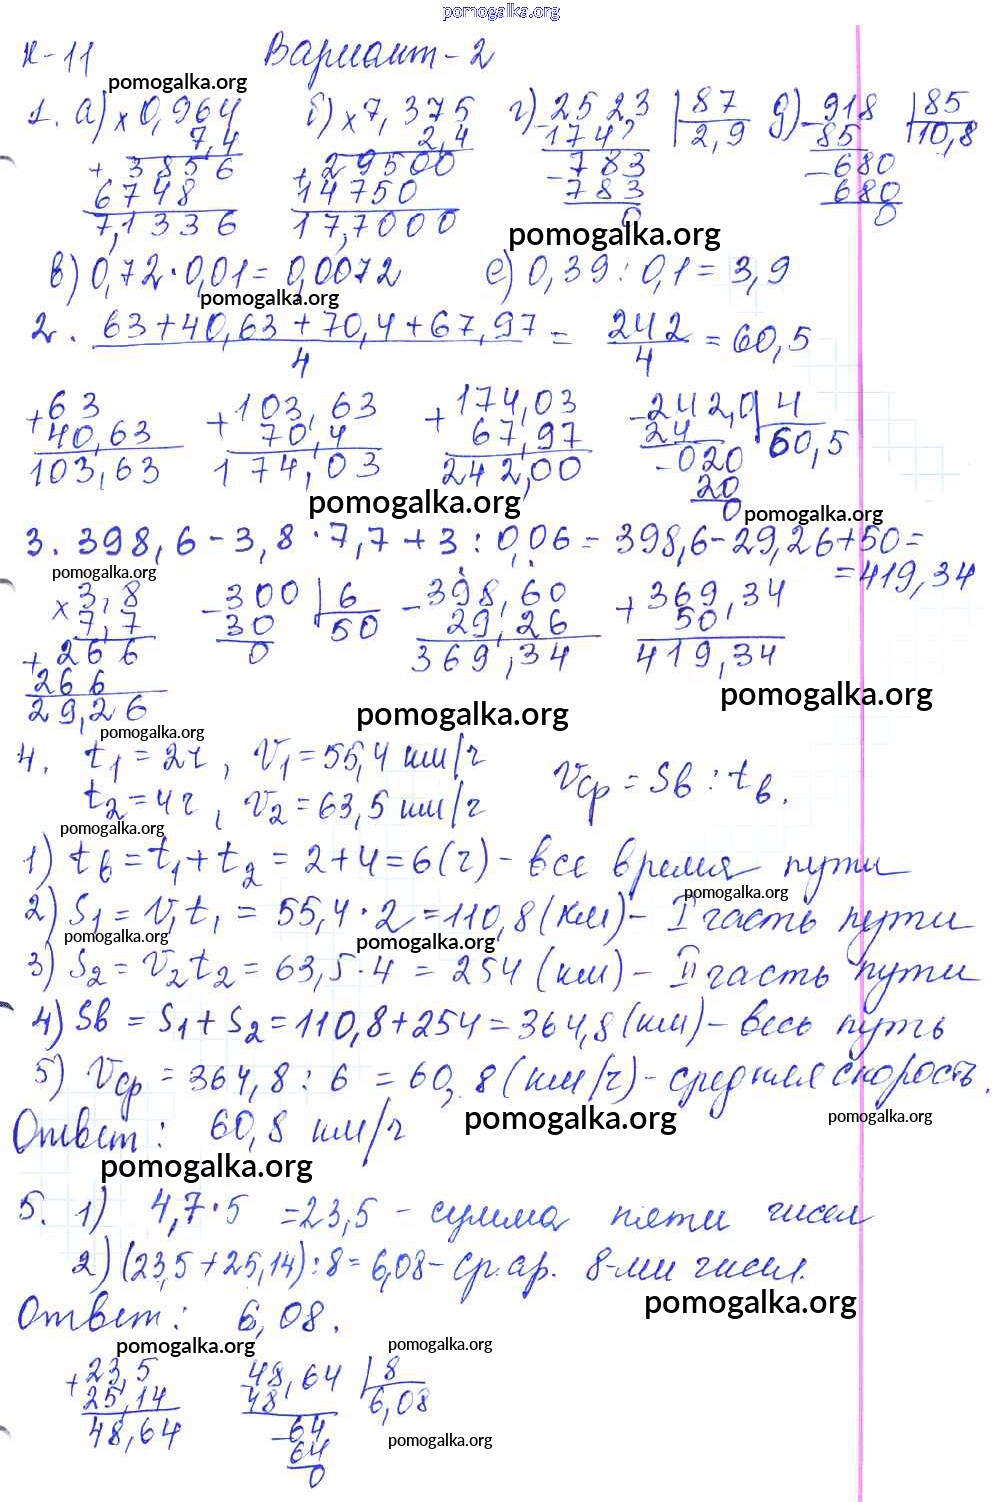 pomogalka.org
К-11 Вариант-2
pomogalka.org
1. а) × 0,964 б) × 7,375 г) - 2523 | 87 д) - 918 | 85
7,4 2,4 174 2,9 85 10,8
+ 3856 + 29500 - 783 - 680
6748 14750 783 680
7,1336 17,7000 0 0
pomogalka.org
в) 0,72 · 0,01 = 0,0072 е) 0,39 : 0,1 = 3,9
pomogalka.org
2. 63+40,63+70,4+67,97 / 4 = 242 / 4 = 60,5
+ 63 + 103,63 + 174,03 - 242,0 | 4
40,63 70,4 67,97 24 60,5
103,63 174,03 242,00 - 020
20
0
pomogalka.org pomogalka.org
3. 398,6 - 3,8 · 7,7 + 3 : 0,06 = 398,6 - 29,26 + 50 =
= 419,34
pomogalka.org
× 3,8 - 300 | 6 - 398,60 + 369,34
7,7 30 50 29,26 50
+ 266 0 369,34 419,34
266
29,26
pomogalka.org
pomogalka.org
pomogalka.org
4. t1 = 2ч, V1 = 55,4 км/ч
t2 = 4ч, V2 = 63,5 км/ч Vср = Sв : tв.
pomogalka.org
1) tв = t1 + t2 = 2 + 4 = 6 (ч) - все время пути
pomogalka.org
2) S1 = V1t1 = 55,4 · 2 = 110,8 (км) - I часть пути
pomogalka.org pomogalka.org
3) S2 = V2t2 = 63,5 · 4 = 254 (км) - II часть пути
4) Sв = S1 + S2 = 110,8 + 254 = 364,8 (км) - весь путь
5) Vср = 364,8 : 6 = 60,8 (км/ч) - средняя скорость.
pomogalka.org pomogalka.org
Ответ: 60,8 км/ч
pomogalka.org
5. 1) 4,7 · 5 = 23,5 - сумма пяти чисел
2) (23,5 + 25,14) : 8 = 6,08 - ср. ар. 8-ми чисел.
pomogalka.org
Ответ: 6,08.
pomogalka.org pomogalka.org
+ 23,5 48,64 | 8
25,14 48 6,08
48,64 - 64
64
0
pomogalka.org